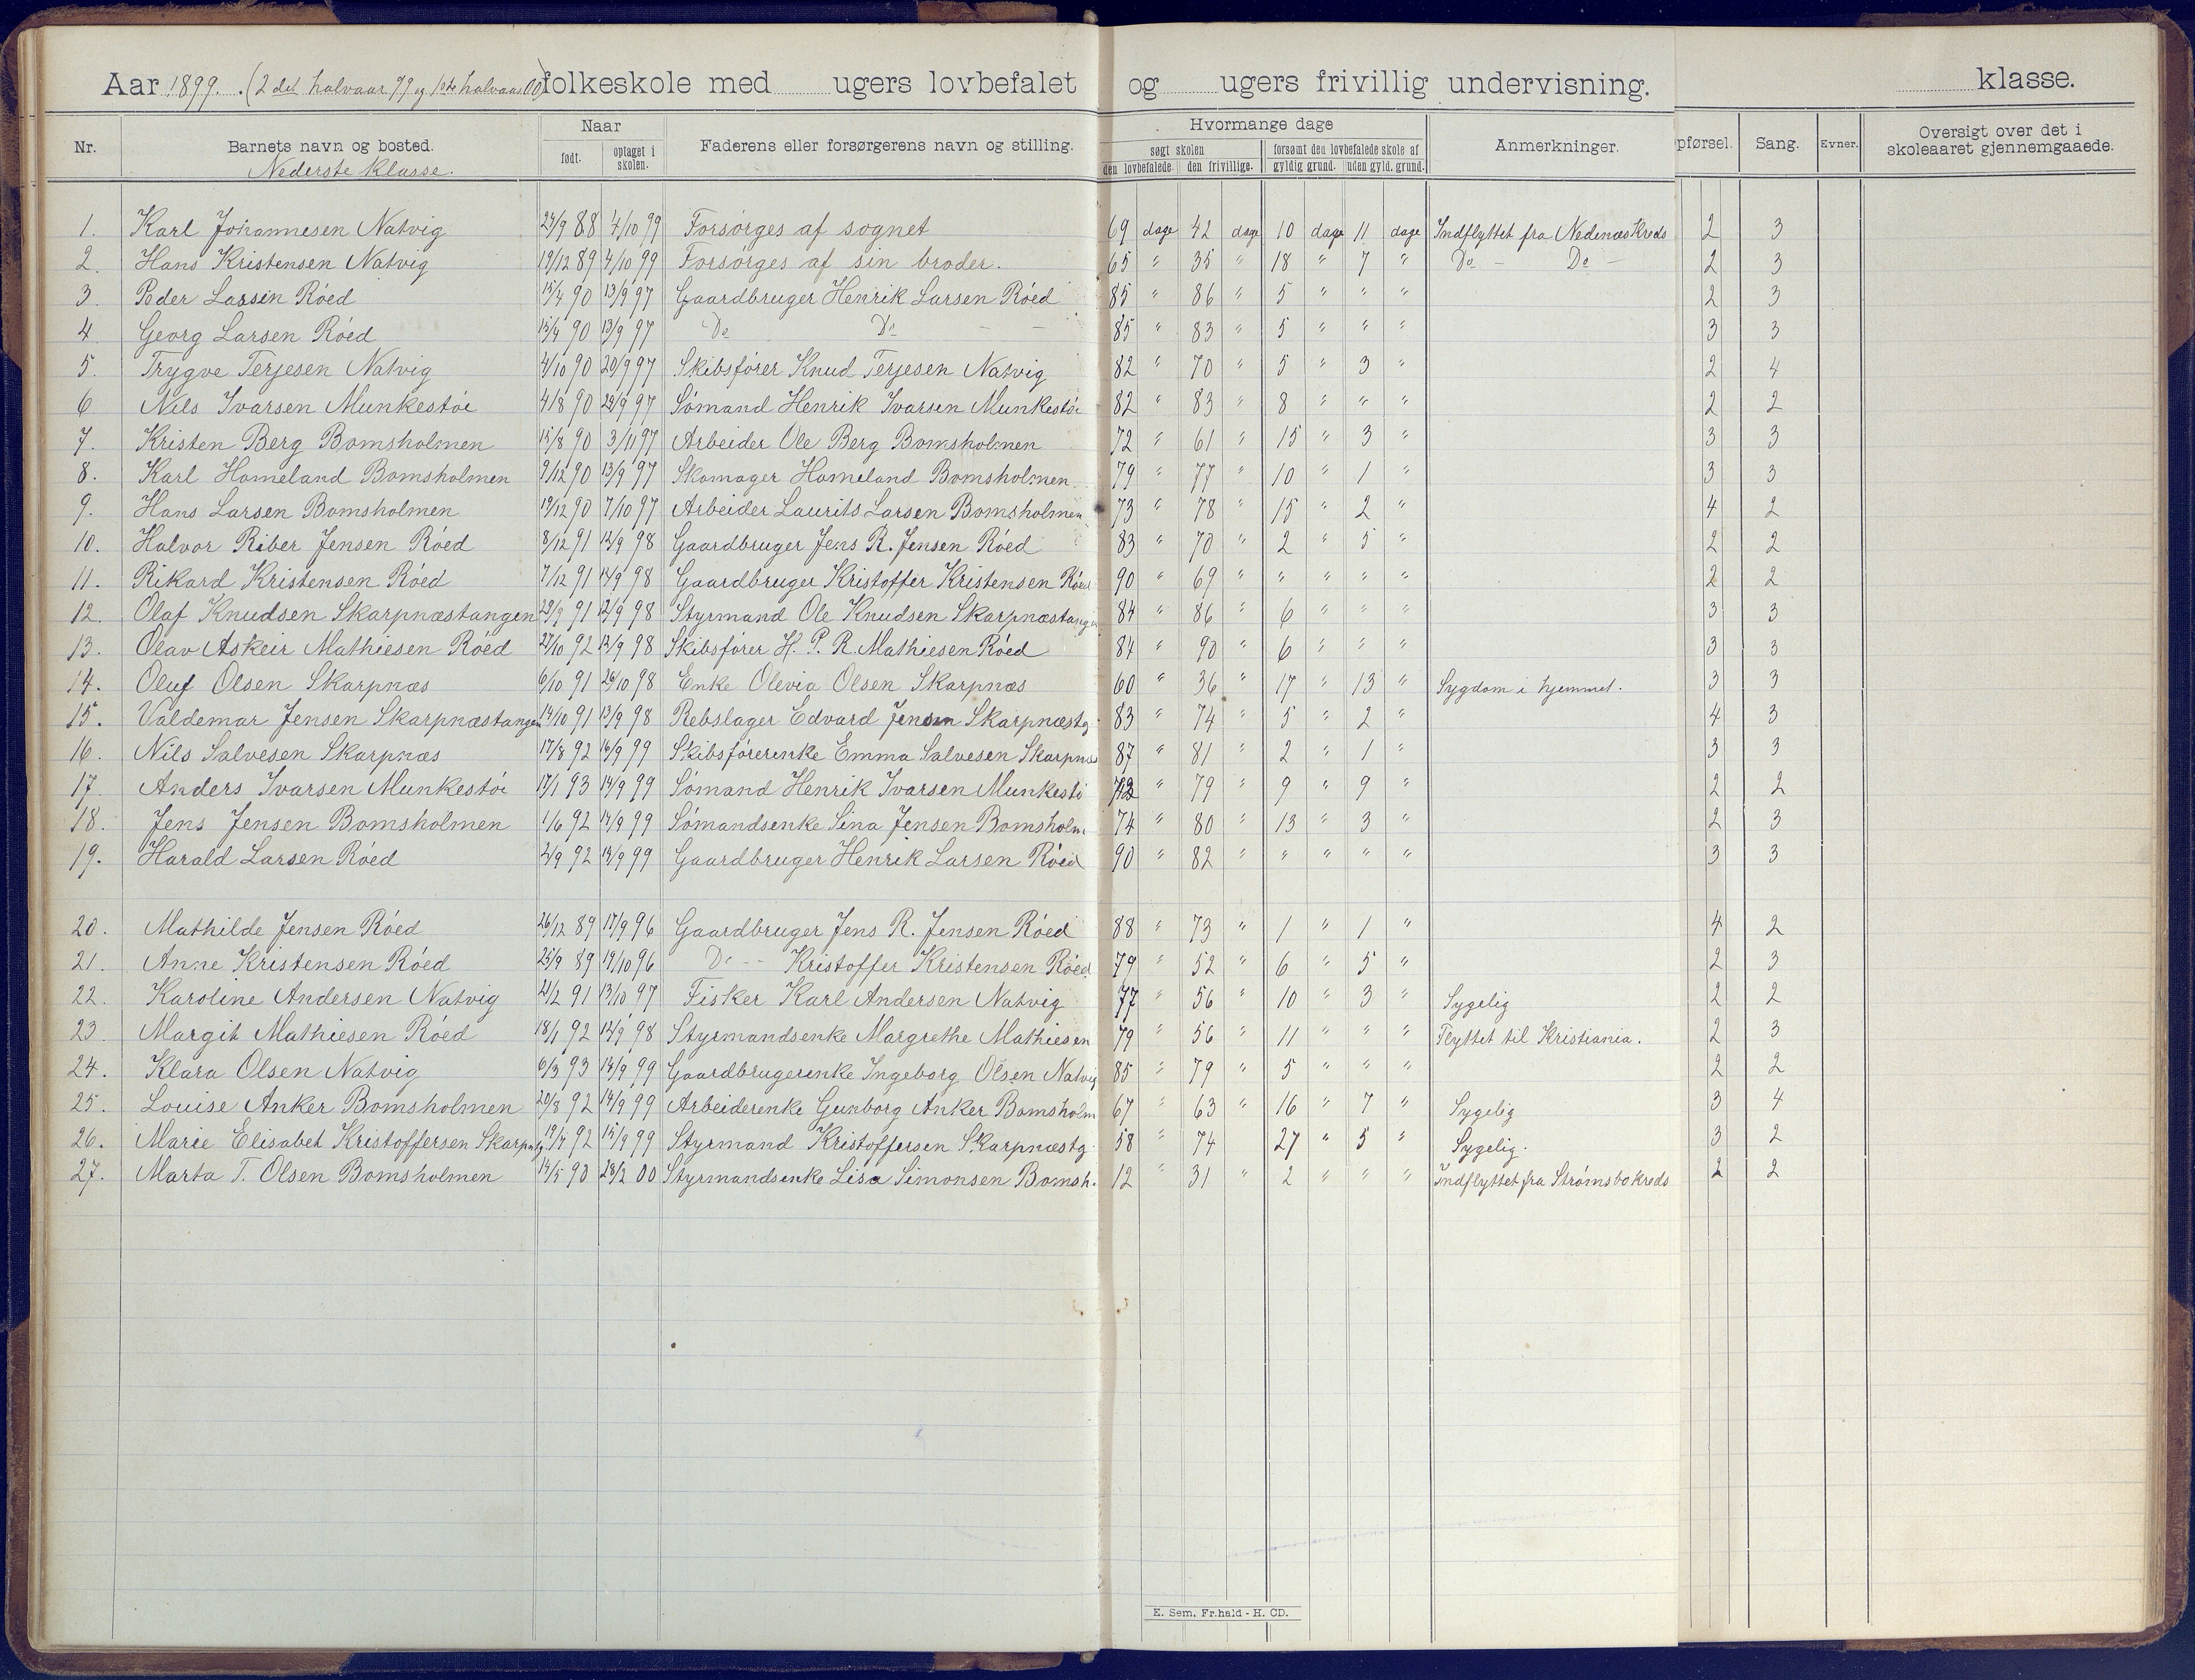 Aar 1899. (2det halvaar 99 og 1ste halvaar 00) folkeskole med ugers lovbefalet og ugers frivillig undervisning. klasse.
Nr. Barnets navn og bosted. Naar født. optaget i skolen. Faderens eller forsørgerens navn og stilling. Hvormange dage søgt skolen den lovbefalede. den frivillige. forsømt den lovbefalede skole af gyldig grund. uden gyld. grund. Anmerkninger. pførsel. Sang. Evner. Oversigt over det i skoleaaret gjennemgaaede.
Nederste klasse.
1. Karl Johannesen Natvig 24/9 88 4/10 99 Forsørges af sognet 69 dage 42 dage 10 dage 11 dage Indflyttet fra Nedenæs Kreds 2 3
2. Hans Kristensen Natvig 19/12 89 4/10 99 Forsørges af sin broder. 65 " 35 " 18 " 7 " Do - Do - 2 3
3. Peder Larsen Røed 15/4 90 13/9 97 Gaardbruger Henrik Larsen Røed 85 " 86 " 5 " " " 2 3
4. Georg Larsen Røed 15/4 90 13/9 97 Do Do - - 85 " 83 " 5 " " " 3 3
5. Trygve Terjesen Natvig 4/10 90 20/9 97 Skibsfører Knud Terjesen Natvig 82 " 70 " 5 " 3 " 2 4
6 Nils Ivarsen Munkestøi 4/8 90 29/9 97 Sømand Henrik Ivarsen Munkestøi 82 " 83 " 8 " " " 2 2
7. Kristen Berg Bomsholmen 15/8 90 3/11 97 Arbeider Ole Berg Bomsholmen 72 " 61 " 15 " 3 " 3 3
8. Karl Homeland Bomsholmen 9/12 90 13/9 97 Skomager Homeland Bomsholmen 79 " 77 " 10 " 1 " 3 3
9. Hans Larsen Bomsholmen 19/12 90 7/10 97 Arbeider Laurits Larsen Bomsholmen 73 " 78 " 15 " 2 " 4 2
10. Halvor Riber Jensen Røed 8/12 91 12/9 98 Gaardbruger Jens R. Jensen Røed 83 " 70 " 2 " 5 " 2 2
11. Rikard Kristensen Røed 7/12 91 14/9 98 Gaardbruger Kristoffer Kristensen Røed 90 " 69 " " " " " 2 2
12. Olaf Knudsen Skarpnæstangen 29/9 91 12/9 98 Styrmand Ole Knudsen Skarpnæstangen 84 " 86 " 6 " " " 3 3
13. Olav Askeir Mathiesen Røed 27/10 92 12/9 98 Skibsfører H. P. R. Mathiesen Røed 84 " 90 " 6 " " " 3 3
14. Oluf Olsen Skarpnæs 6/10 91 26/10 98 Enke Olevia Olsen Skarpnæs 60 " 36 " 17 " 13 " Sygdom i hjemmet. 3 3
15. Valdemar Jensen Skarpnæstangen 14/10 91 13/9 98 Rebslager Edvard Jensen Skarpnæstg. 83 " 74 " 5 " 2 " 4 3
16. Nils Salvesen Skarpnæs 17/8 92 16/9 99 Skibsførerenke Emma Salvesen Skarpnæs 87 " 81 " 2 " 1 " 3 3
17. Anders Ivarsen Munkestøi 17/1 93 14/9 99 Sømand Henrik Ivarsen Munkestø 72 " 79 " 9 " 9 " 2 2
18. Jens Jensen Bomsholmen 1/6 92 14/9 99 Sømandsenke Sina Jensen Bomsholm. 74 " 80 " 13 " 3 " 2 3
19. Harald Larsen Røed 2/9 92 14/9 99 Gaardbruger Henrik Larsen Røed 90 " 82 " " " " " 3 3
20. Mathilde Jensen Røed 26/12 89 17/9 96 Gaardbruger Jens R. Jensen Røed 88 " 73 " 1 " 1 " 4 2
21. Anne Kristensen Røed 25/9 89 19/10 96 Do -- Kristoffer Kristensen Røed 79 " 52 " 6 " 5 " 2 3
22. Karoline Andersen Natvig 21/2 91 13/10 97 Fisker Karl Andersen Natvig 77 " 56 " 10 " 3 " Sygelig 2 2
23. Margit Mathiesen Røed 18/1 92 12/9 98 Styrmandsenke Margrethe Mathiesen 79 " 56 " 11 " " " Flyttet til Kristiania. 2 3
24. Klara Olsen Natvig 6/3 93 14/9 99 Gaardbrugerenke Ingeborg Olsen Natvig 85 " 79 " 5 " " " 2 2
25. Louise Anker Bomsholmen 20/8 92 14/9 99 Arbeiderenke Gunborg Anker Bomsholm 67 " 63 " 16 " 7 " Sygelig 3 4
26. Marie Elisabet Kristoffersen Skarpnstg. 19/4 92 15/9 99 Styrmand Kristoffersen Skarpnæstg. 58 " 74 " 27 " 5 " Sygelig. 3 2
27. Marta T. Olsen Bomsholmen 14/5 90 28/2 00 Styrmandsenke Lisa Simonsen Bomsh. 12 " 31 " 2 " " " Indflyttet fra Strømsbo kreds 2 2
E. Sem. Fr.hald - H. CD.